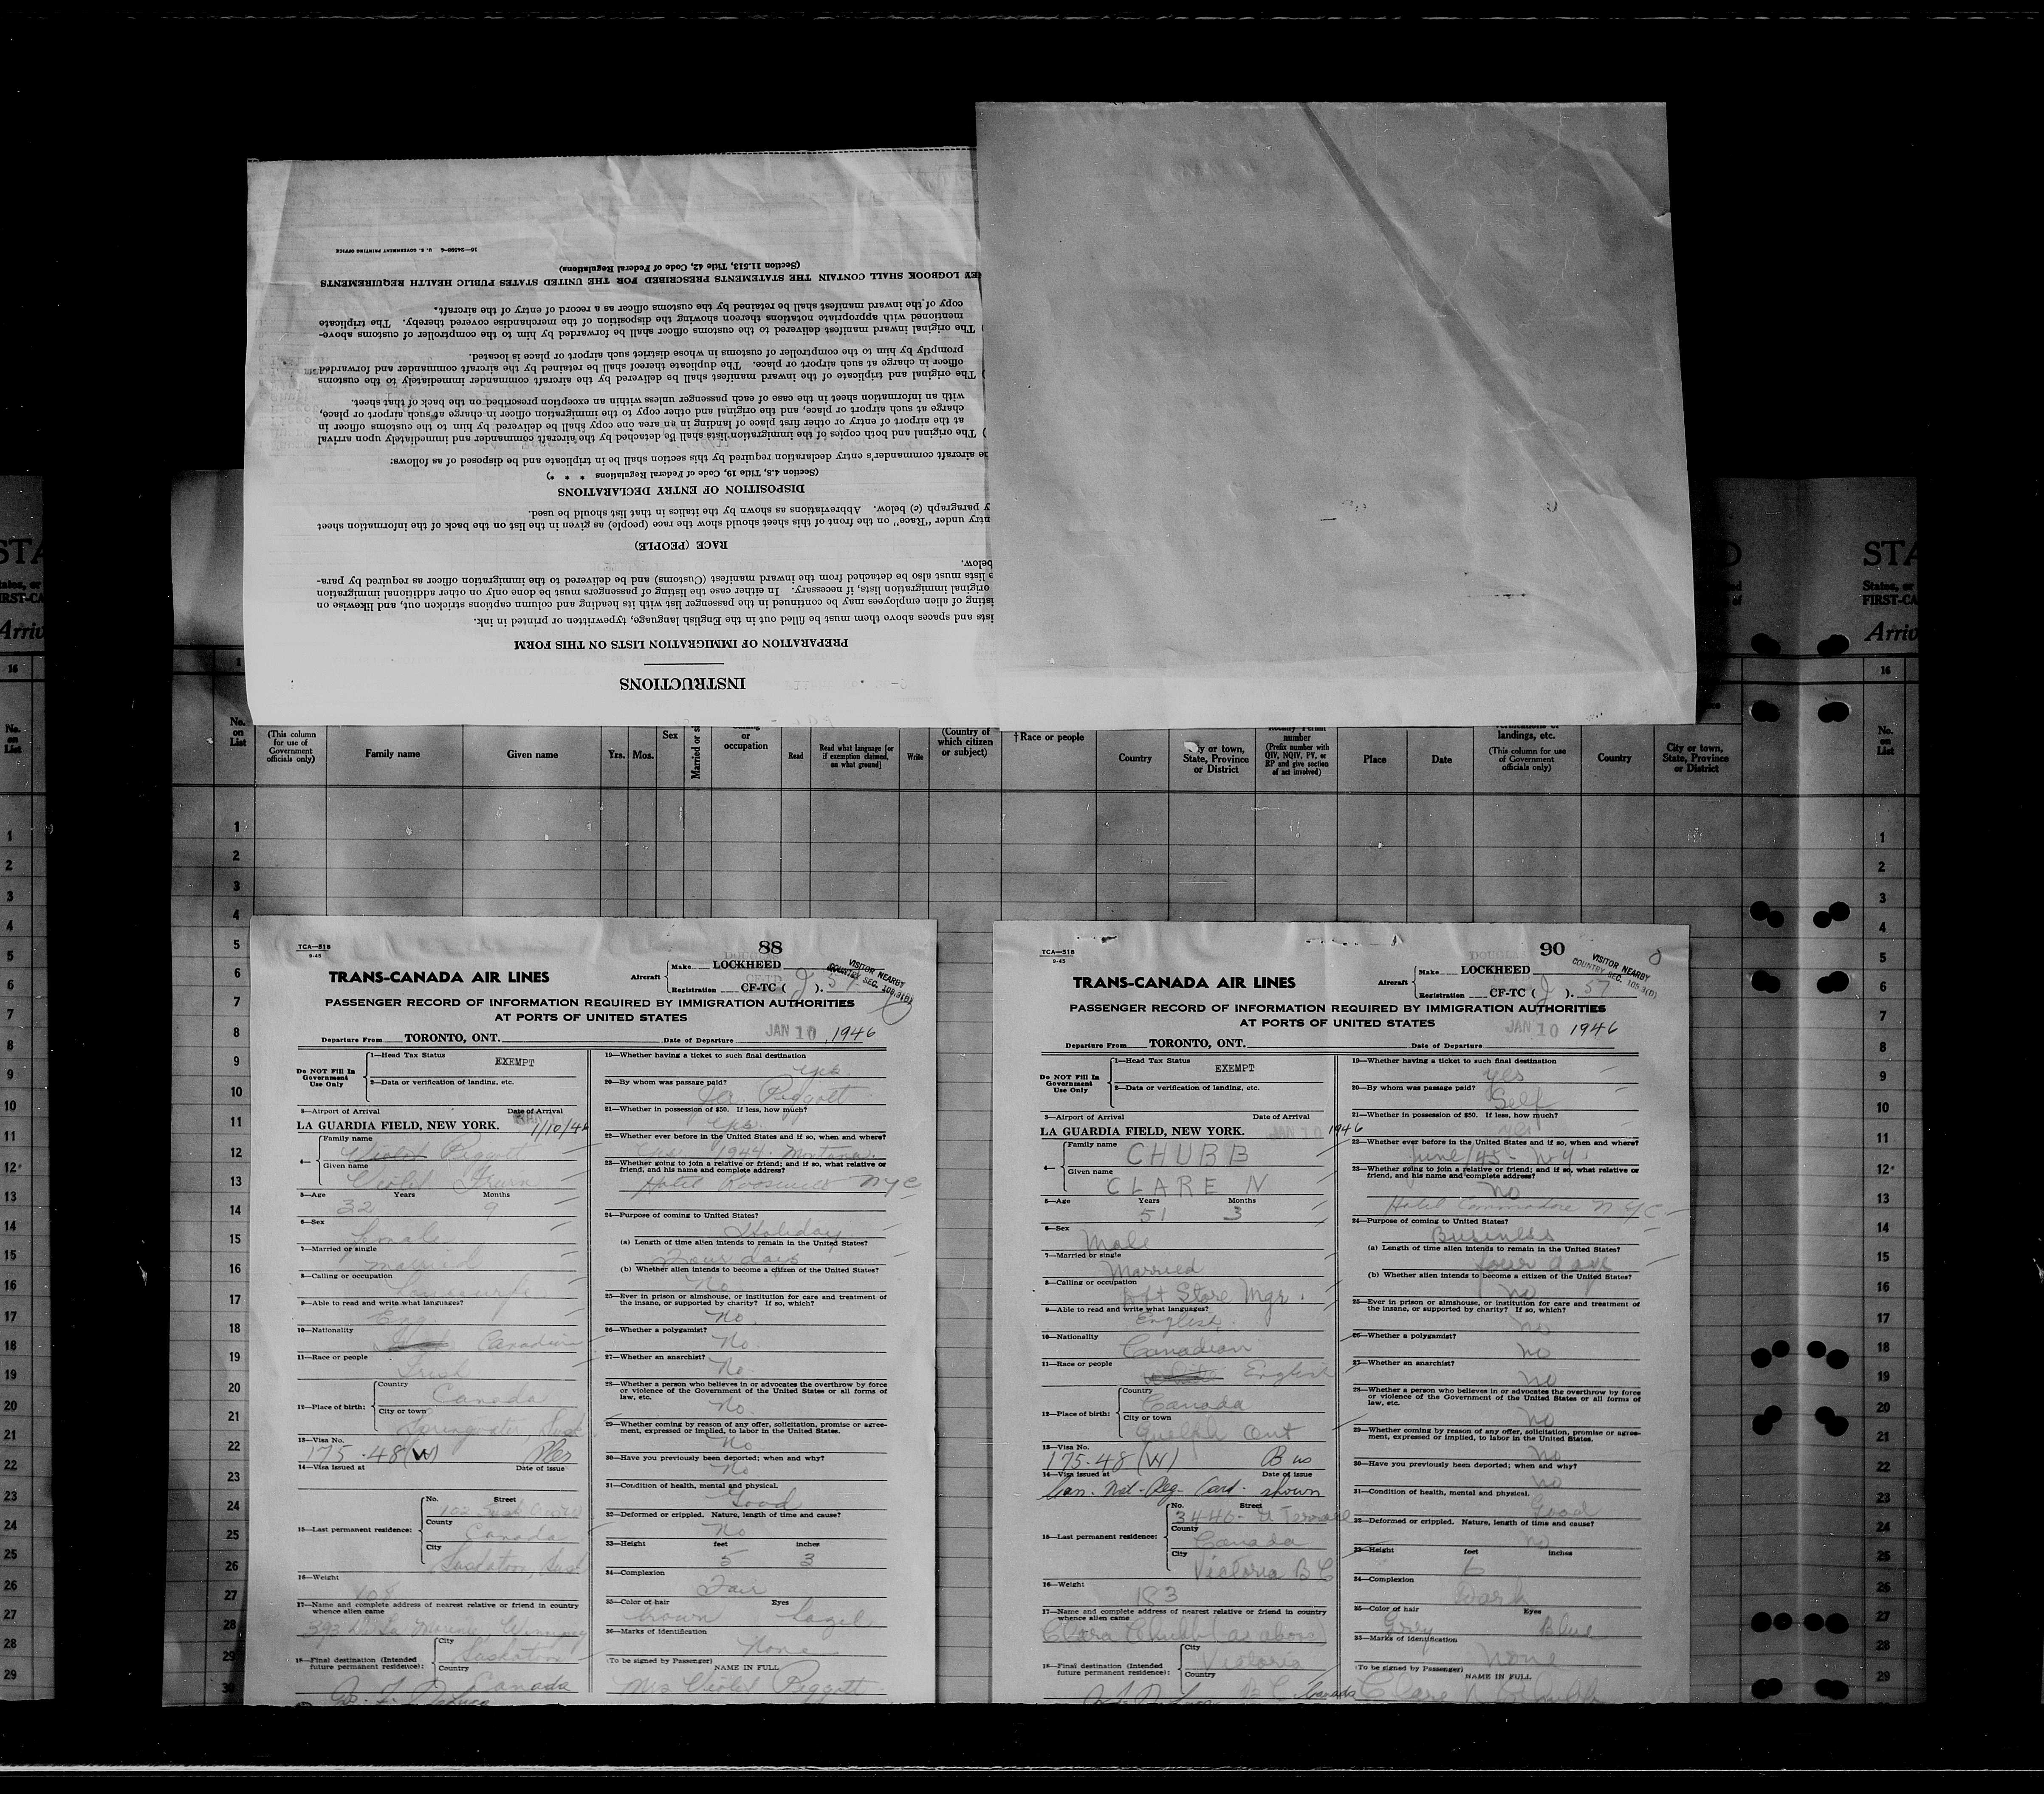 16—24598-4 U. S. GOVERNMENT PRINTING OFFICE
(Section 11.513, Title 42, Code of Federal Regulations)
LOGBOOK SHALL CONTAIN THE STATEMENTS PRESCRIBED FOR THE UNITED STATES PUBLIC HEALTH REQUIREMENTS
copy of the inward manifest shall be retained by the customs officer as a record of entry of the aircraft.
mentioned with appropriate notations thereon showing the disposition of the merchandise covered thereby. The triplicate
) The original inward manifest delivered to the customs officer shall be forwarded by him to the comptroller of customs above-
promptly by him to the comptroller of customs in whose district such airport or place is located.
officer in charge at such airport or place. The duplicate thereof shall be retained by the aircraft commander and forwarded
) The original and triplicate of the inward manifest shall be delivered by the aircraft commander immediately to the customs
with an information sheet in the case of each passenger unless within an exception prescribed on the back of that sheet.
charge at such airport or place, and the original and other copy to the immigration officer in charge at such airport or place,
at the airport of entry or other first place of landing in an area one copy shall be delivered by him to the customs officer in
) The original and both copies of the immigration lists shall be detached by the aircraft commander and immediately upon arrival
aircraft commander's entry declaration required by this section shall be in triplicate and be disposed of as follows:
(Section 4.8, Title 19, Code of Federal Regulations * * *)
DISPOSITION OF ENTRY DECLARATIONS
y paragraph (c) below. Abbreviations as shown by the italics in that list should be used.
ntry under "Race" on the front of this sheet should show the race (people) as given in the list on the back of the information sheet
RACE (PEOPLE)
below.
lists must also be detached from the inward manifest (Customs) and be delivered to the immigration officer as required by para-
original immigration lists, if necessary. In either case the listing of passengers must be done only on other additional immigration
isting of alien employees may be continued in the passenger list with its heading and column captions stricken out, and likewise on
ists and spaces above them must be filled out in the English language, typewritten or printed in ink.
PREPARATION OF IMMIGRATION LISTS ON THIS FORM
INSTRUCTIONS
STA
States, or
FIRST-CA
Arriv
16
No. on List
(This column for use of Government officials only)
Family name
Given name
Yrs.
Mos.
Sex
Married or
or occupation
Read
Read what language [or if exemption claimed, on what ground]
Write
(Country of which citizen or subject)
†Race or people
Country
City or town, State, Province or District
number (Prefix number with QIV, NQIV, PV, or RP and give section of act involved)
Place
Date
landings, etc. (This column for use of Government officials only)
Country
City or town, State, Province or District
No. on List
TCA—518
9-45
88
TRANS-CANADA AIR LINES
Aircraft Make LOCKHEED DOUGLAS
Registration CF-TC ( J ). 57
VISITOR NEARBY
COUNTRY SEC. 105.3(B)
PASSENGER RECORD OF INFORMATION REQUIRED BY IMMIGRATION AUTHORITIES
AT PORTS OF UNITED STATES
Departure From TORONTO, ONT. Date of Departure JAN 10 1946
Do NOT Fill In Government Use Only
1—Head Tax Status EXEMPT
2—Data or verification of landing, etc.
3—Airport of Arrival Date of Arrival
LA GUARDIA FIELD, NEW YORK. 1/10/46
4— Family name Violet Piggott
Given name Violet
5—Age Years Months
32 9
6—Sex
Female
7—Married or single
Married
8—Calling or occupation
Housewife
9—Able to read and write what languages?
Eng.
10—Nationality
Canadian
11—Race or people
Irish
12—Place of birth: Country
Canada
City or town
Springwater, Sask
13—Visa No.
175-48(W) Ples
14—Visa issued at Date of issue
15—Last permanent residence: No. Street
County
Canada
City
Saskatoon, Sask
16—Weight
108
17—Name and complete address of nearest relative or friend in country
whence alien came
Winnipeg
18—Final destination (Intended future permanent residence): City
Saskatoon
Country
Canada
19—Whether having a ticket to such final destination
yes
20—By whom was passage paid?
Piggott
21—Whether in possession of $50. If less, how much?
Yes
22—Whether ever before in the United States and if so, when and where?
Yes 1944 Montana
23—Whether going to join a relative or friend; and if so, what relative or
friend, and his name and complete address?
Hotel Roosevelt NYC
24—Purpose of coming to United States?
Holiday
(a) Length of time alien intends to remain in the United States?
Four days
(b) Whether alien intends to become a citizen of the United States?
No
25—Ever in prison or almshouse, or institution for care and treatment of
the insane, or supported by charity? If so, which?
No
26—Whether a polygamist?
No
27—Whether an anarchist?
No
28—Whether a person who believes in or advocates the overthrow by force
or violence of the Government of the United States or all forms of
law, etc.
No
29—Whether coming by reason of any offer, solicitation, promise or agree-
ment, expressed or implied, to labor in the United States.
No
30—Have you previously been deported; when and why?
No
31—Condition of health, mental and physical.
Good
32—Deformed or crippled. Nature, length of time and cause?
No
33—Height feet inches
5 3
34—Complexion
Fair
35—Color of hair Eyes
brown hazel
36—Marks of identification
None
(To be signed by Passenger) NAME IN FULL
Mrs Violet Piggott
TCA—518
9-45
90
TRANS-CANADA AIR LINES
Aircraft Make LOCKHEED DOUGLAS
Registration CF-TC ( J ). 57
VISITOR NEARBY
COUNTRY SEC. 105.3(B)
PASSENGER RECORD OF INFORMATION REQUIRED BY IMMIGRATION AUTHORITIES
AT PORTS OF UNITED STATES
Departure From TORONTO, ONT. Date of Departure JAN 10 1946
Do NOT Fill In Government Use Only
1—Head Tax Status EXEMPT
2—Data or verification of landing, etc.
3—Airport of Arrival Date of Arrival
LA GUARDIA FIELD, NEW YORK. JAN 10 1946
4— Family name CHUBB
Given name CLARE N
5—Age Years Months
51 3
6—Sex
Male
7—Married or single
Married
8—Calling or occupation
Dept Store Mgr.
9—Able to read and write what languages?
English
10—Nationality
Canadian
11—Race or people
White English
12—Place of birth: Country
Canada
City or town
Guelph Ont
13—Visa No.
175-48(W) Bus
14—Visa issued at Date of issue
Can. Nat-Reg- Card. shown
15—Last permanent residence: No. Street
3440-
County
Canada
City
Victoria B C
16—Weight
183
17—Name and complete address of nearest relative or friend in country
whence alien came
Clara Chubb (as above)
18—Final destination (Intended future permanent residence): City
Victoria
Country
B C Canada
19—Whether having a ticket to such final destination
yes
20—By whom was passage paid?
Self
21—Whether in possession of $50. If less, how much?
yes
22—Whether ever before in the United States and if so, when and where?
June/45- N.Y.
23—Whether going to join a relative or friend; and if so, what relative or
friend, and his name and complete address?
No
Hotel Commodore N Y C
24—Purpose of coming to United States?
Business
(a) Length of time alien intends to remain in the United States?
four days
(b) Whether alien intends to become a citizen of the United States?
No
25—Ever in prison or almshouse, or institution for care and treatment of
the insane, or supported by charity? If so, which?
no
26—Whether a polygamist?
no
27—Whether an anarchist?
no
28—Whether a person who believes in or advocates the overthrow by force
or violence of the Government of the United States or all forms of
law, etc.
no
29—Whether coming by reason of any offer, solicitation, promise or agree-
ment, expressed or implied, to labor in the United States.
no
30—Have you previously been deported; when and why?
no
31—Condition of health, mental and physical.
Good
32—Deformed or crippled. Nature, length of time and cause?
no
33—Height feet inches
6
34—Complexion
Dark
35—Color of hair Eyes
Grey Blue
36—Marks of identification
none
(To be signed by Passenger) NAME IN FULL
Clare N Chubb